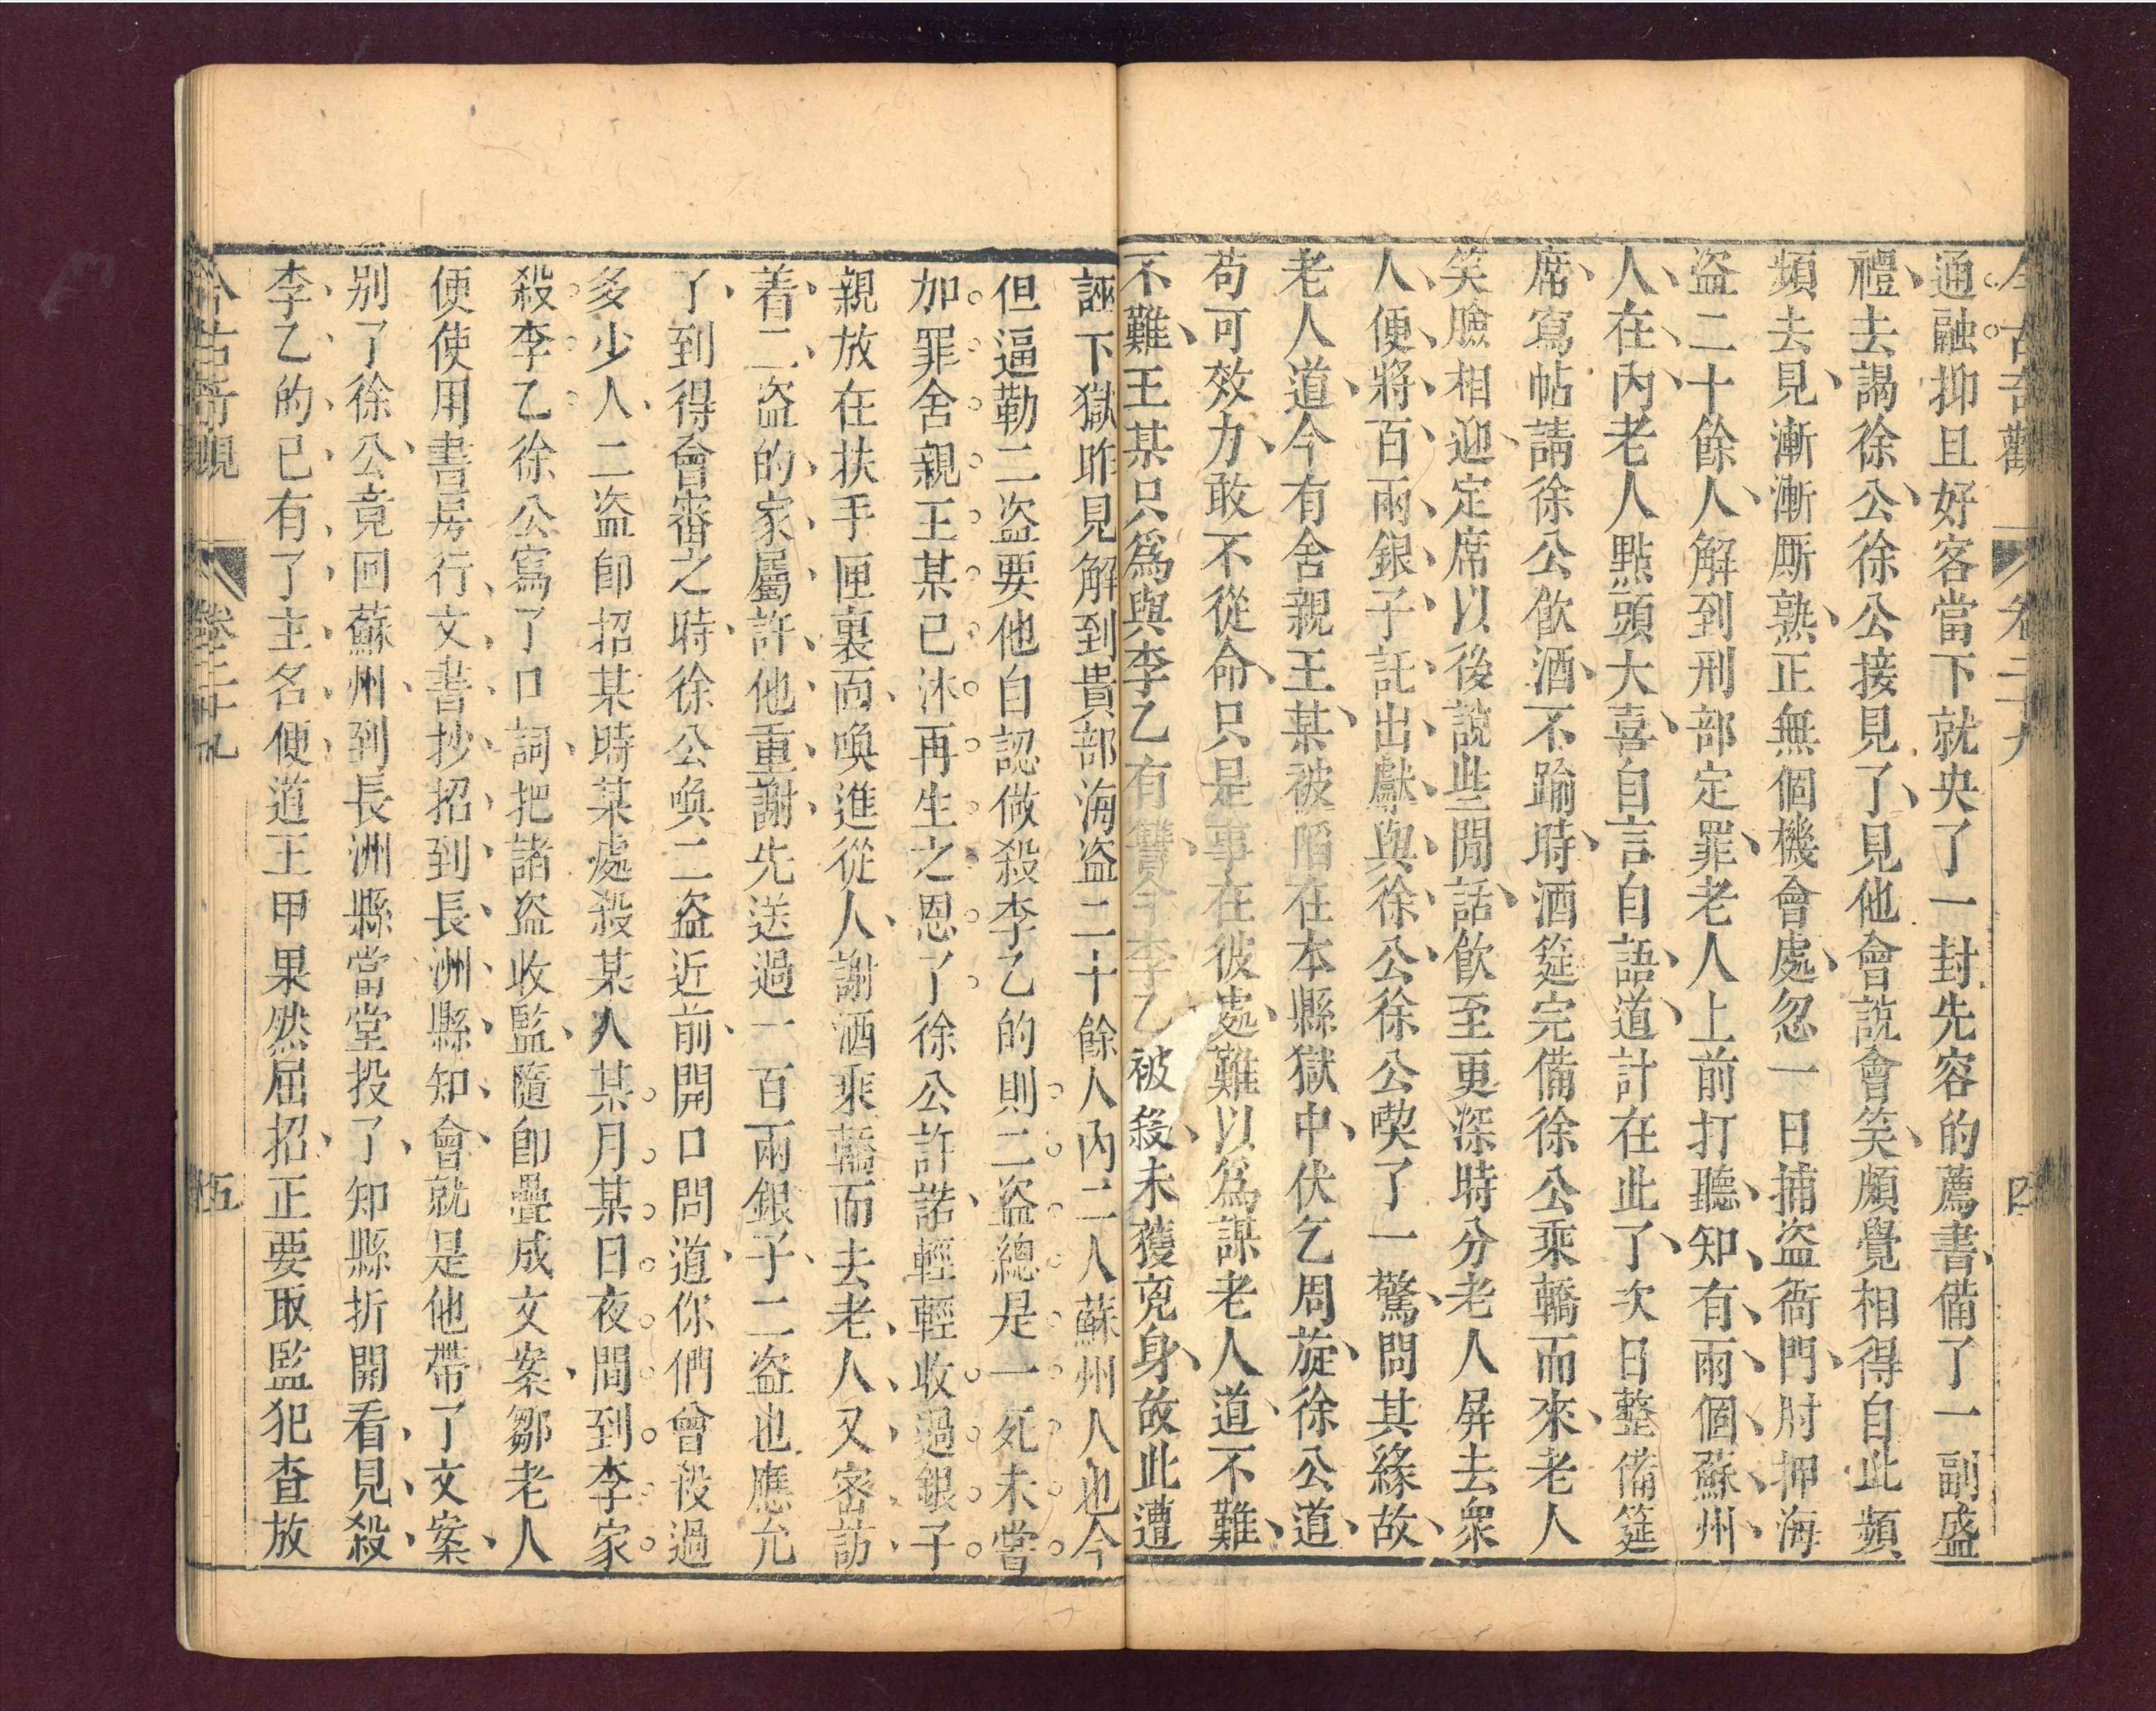 今古奇觀 卷二十九 四
通融抑且好客當下就央了一封先容的薦書備了一副盛
禮去謁徐公徐公接見了見他會說會笑頗覺相得自此頻
頻去見漸漸厮熟正無個機會處忽一日捕盗衙門肘押海
盗二十餘人解到刑部定罪老人上前打聽知有兩個蘇州
人在内老人點頭大喜自言自語道計在此了次日整備筵
席寫帖請徐公飲酒不踰時酒筵完備徐公乘轎而來老人
笑臉相迎定席以後說些閒話飲至更深時分老人屏去衆
人便將百兩銀子託出獻與徐公徐公喫了一驚問其緣故
老人道今有舍親王某被陷在本縣獄中伏乞周旋徐公道
苟可效力敢不從命只是事在彼處難以爲謀老人道不難
不難王某只爲與李乙有讐今李乙被殺未獲兇身故此遭
誣下獄昨見解到貴部海盗二十餘人內二人蘇州人也今
但逼勒二盗要他自認做殺李乙的則二盗總是一死未嘗
加罪舍親王某已沐再生之恩了徐公許諾輕輕收過銀子
親放在扶手匣裏面喚進從人謝酒乘轎而去老人又密訪
着二盗的家屬許他重謝先送過一百兩銀子二盗也應允
了到得會審之時徐公喚二盗近前開口問道你們曾殺過
多少人二盗卽招某時某處殺某人某月某日夜間到李家
殺李乙徐公寫了口詞把諸盗收監隨卽疊成文案鄒老人
便使用書房行文書抄招到長洲縣知會就是他帶了文案
别了徐公竟回蘇州到長洲縣當堂投了知縣折開看見殺
李乙的已有了主名便道王甲果然屈招正要取監犯查放
今古奇觀 卷二十九 五